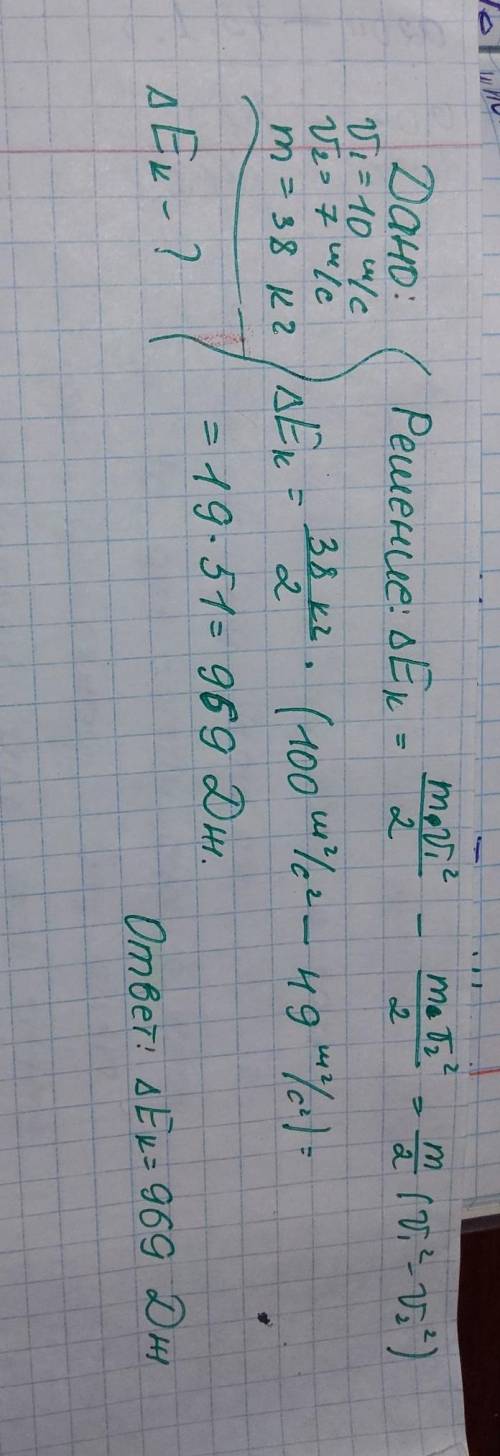 Дано:
v₁ = 10 м/с
v₂ = 7 м/с
m = 38 кг
ΔEк - ?
Решение: ΔEк = m·v₁²/2 - m·v₂²/2 = m/2 (v₁² - v₂²)
ΔEк = 38 кг/2 · (100 м²/с² - 49 м²/с²) =
= 19 · 51 = 969 Дж.
Ответ: ΔEк = 969 Дж